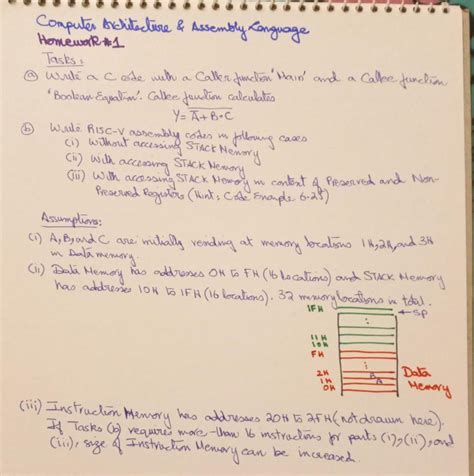 Computer Architecture & Assembly Language
Homework #1
Tasks:
(a) Write a C code with a Caller function 'Main' and a Callee function
'Boolean Equation'. Callee function calculates
Y = \overline{A + B • C}
(b) Write RISC-V assembly codes in following cases
(i) Without accessing STACK Memory
(ii) With accessing STACK Memory
(iii) With accessing STACK Memory in context of Preserved and Non-
Preserved Registers (Hint: Code Example 6.25)
Assumptions:
(i) A, B, and C are initially residing at memory locations 1H, 2H, and 3H
in Data memory.
(ii) Data Memory has addresses 0H to FH (16 locations) and STACK Memory
has addresses 10H to 1FH (16 locations). 32 memory locations in total.
1FH
←SP
11H
10H
FH
2H
1H
0H
B
A
Data
Memory
(iii) Instruction Memory has addresses 20H to 2FH (not drawn here).
If Tasks (b) requires more than 16 instructions for parts (i), (ii), and
(iii), size of Instruction Memory can be increased.